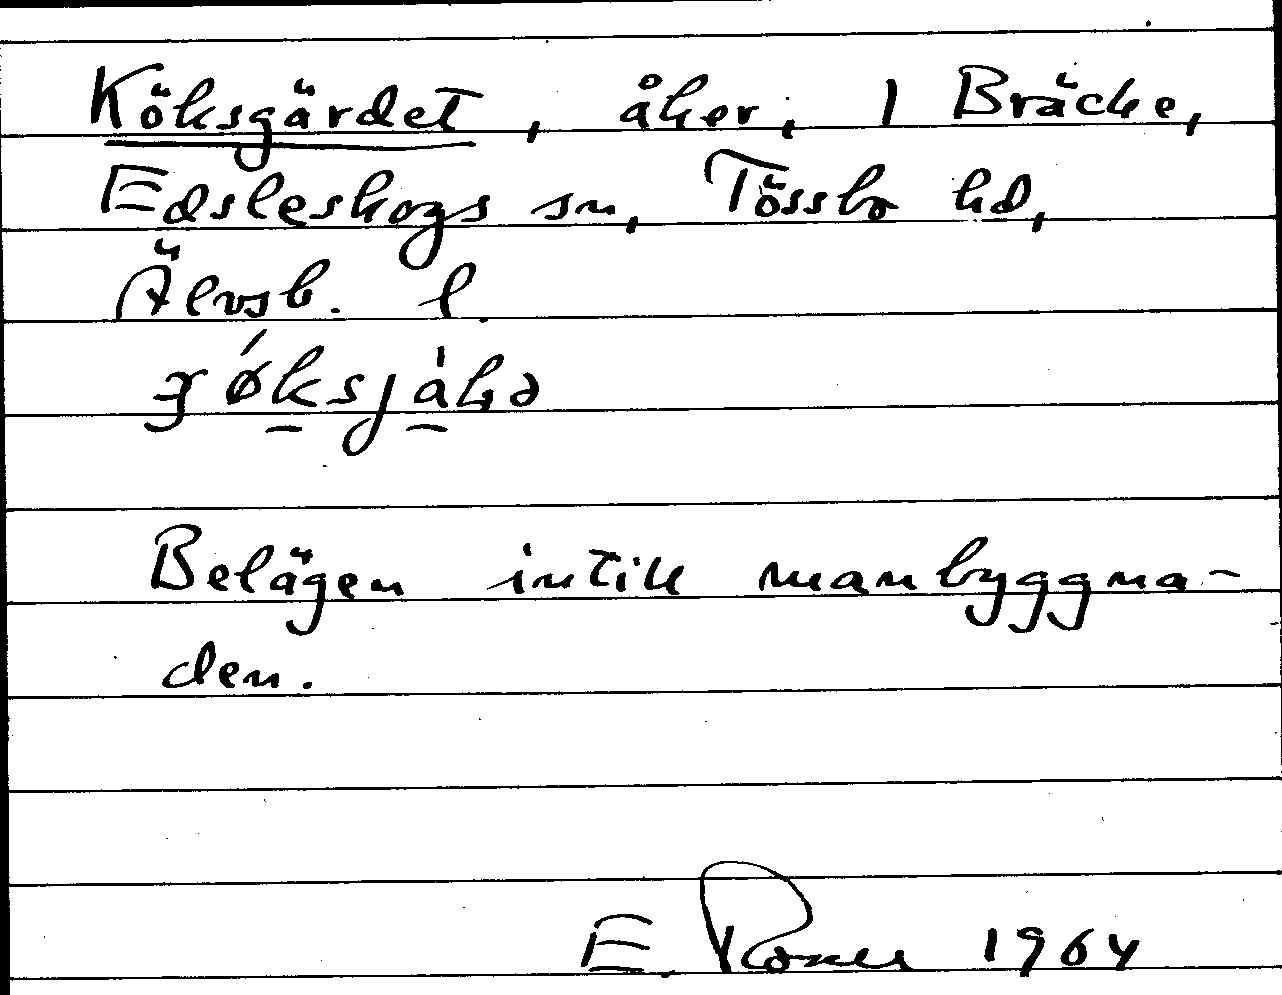 Köksgärdet, åker, 1 Bräcke,
Edsleskogs sn, Tössbo hd,
Älvsb. l.
Belägen intill manbyggna-
den.
E. 1964